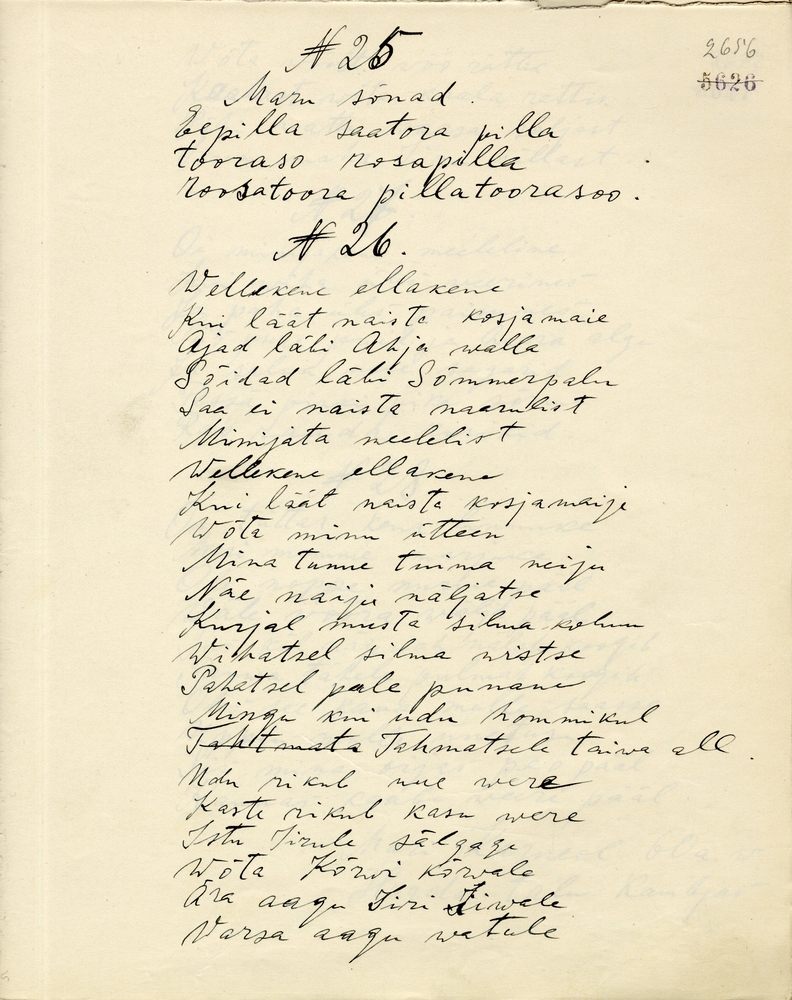 2656
5626
N 25
Maru sõnad.
Eepilla saatora pilla
tooraso rosapilla
roosatoora pillatoorasoo.
N 26.
Wellekene ellakene
Kui läät naista kosjamaie
Ajad läbi Ahja walla
Sõidad läbi Sõmmerpalu
Saa ei naista naarulist
Minijata meelelist
Wellekene ellakene
Kui läät naista kosjamaije
Wõta minu ütteen
Mina tunne tuima neiju
Näe näiju näljatse
Kurjal musta silma kolmu
Wihatsel silma wistse
Pahatsel pale punane
Mingu kui udu hommikul
Tahtmata Tahmatsele taiwa all.
Udu rikub uue were
Kaste rikub kasu were
Istu Jirule sälgage
Wõta Kõrwi kõrwale
Ära aagu Jiri Jiwale
Varsa aagu watule